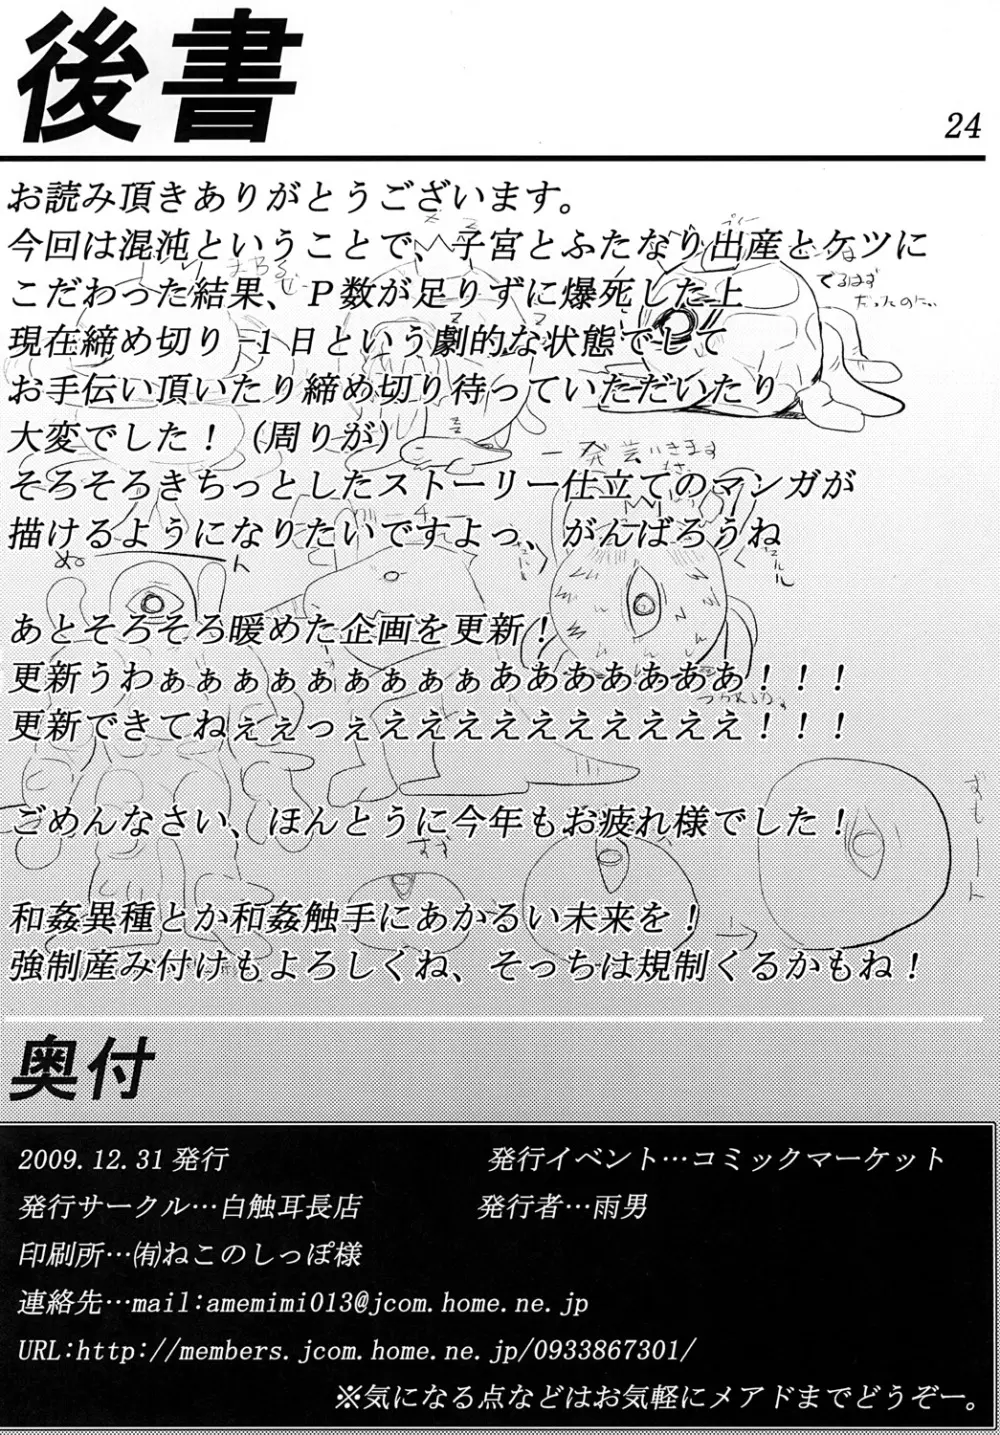 後書
24
お読み頂きありがとうございます。
今回は混沌ということで、子宮とふたなり出産とケツに
こだわった結果、P数が足りずに爆死した上
現在締め切り-1日という劇的な状態でして
お手伝い頂いたり締め切り待っていただいたり
大変でした!(周りが)
そろそろきちっとしたストーリー仕立てのマンガが
描けるようになりたいですよっ、がんばろうね
あとそろそろ暖めた企画を更新!
更新うわぁぁぁぁぁぁぁぁぁあああああああ!!!
更新できてねぇぇっぇええええええええええ!!!
ごめんなさい、ほんとうに今年もお疲れ様でした!
和姦異種とか和姦触手にあかるい未来を!
強制産み付けもよろしくね、そっちは規制くるかもね!
でるはず
だったのにぃ
一発芸いきます
ぬーん
ずもーん
奥付
2009.12.31発行 発行イベント…コミックマーケット
発行サークル…白触耳長店 発行者…雨男
印刷所…㈲ねこのしっぽ様
連絡先…mail:amemimi013@jcom.home.ne.jp
URL:http://members.jcom.home.ne.jp/0933867301/
※気になる点などはお気軽にメアドまでどうぞー。